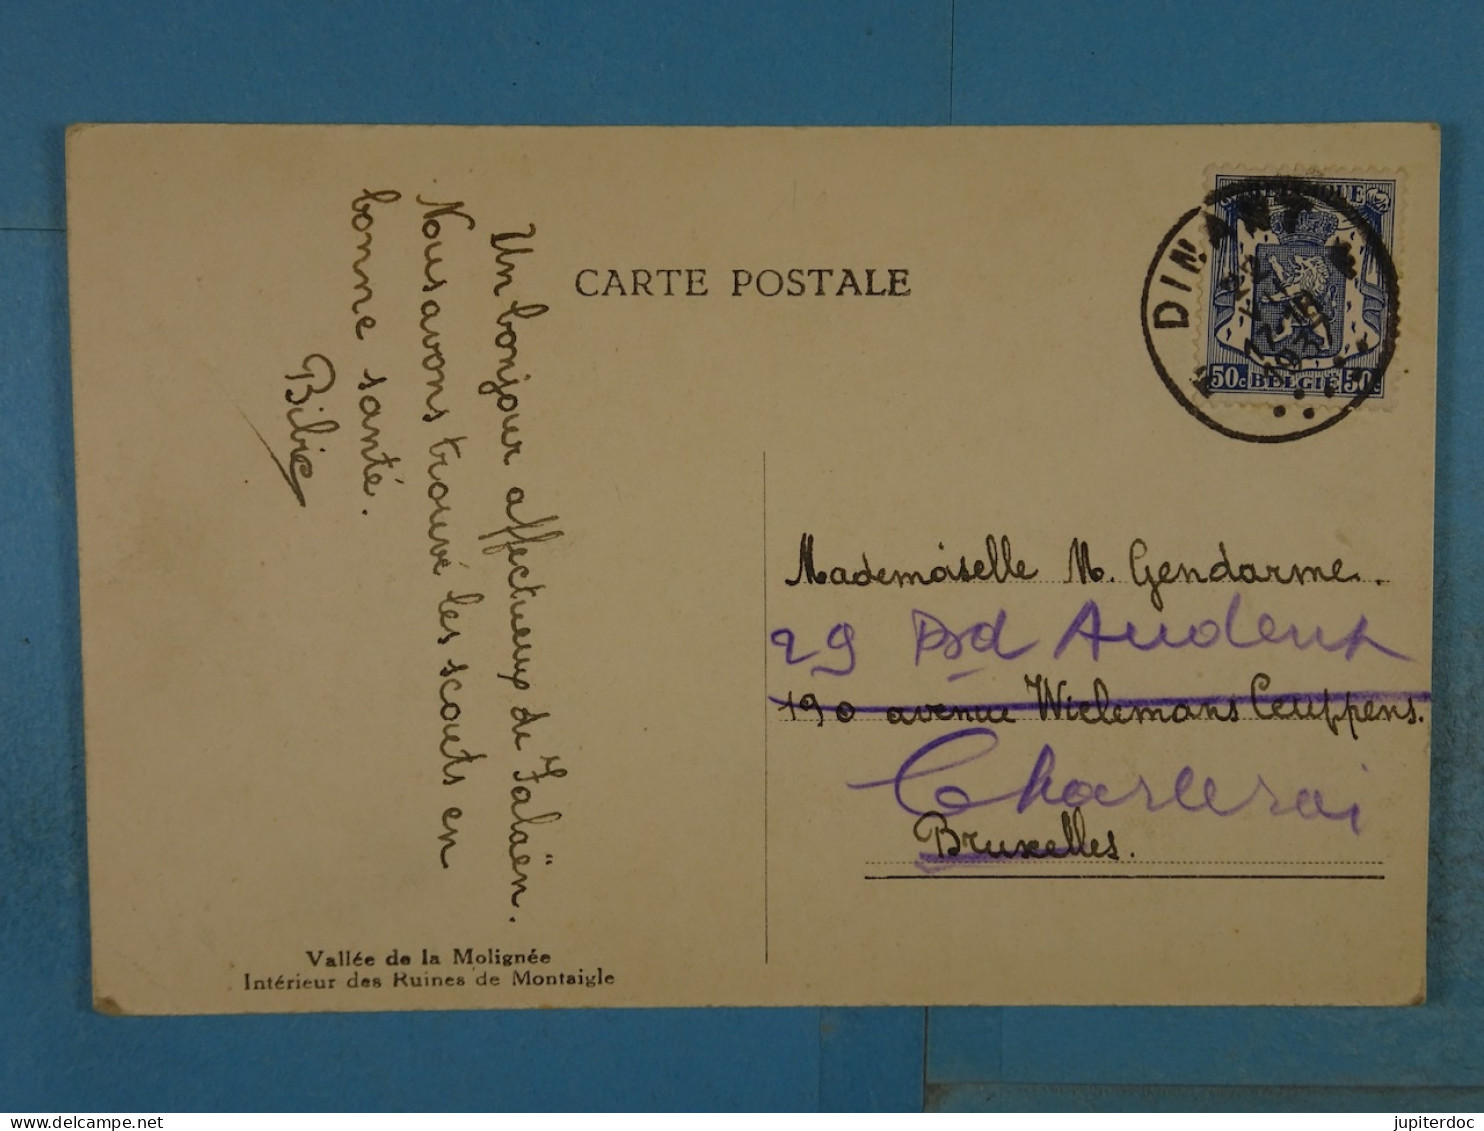 CARTE POSTALE
Un bonjour affectueux de Falaën.
Nous avons trouvé les scouts en
bonne santé.
Bibie
Vallée de la Molignée
Intérieur des Ruines de Montaigle
DINANT
1937
50c BELGIË 50c
Mademoiselle M. Gendarme.
29 Bd Audent
190 avenue Wielemans Ceuppens.
Charleroi
Bruxelles.
jupiterdoc